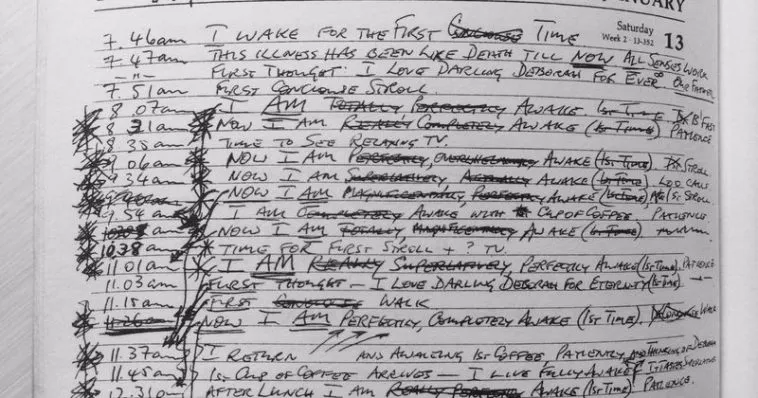 ANUARY
Saturday
Week 2 · 13-352 13
7.46am I WAKE FOR THE FIRST CONCIOUSE TIME
7.47am THIS ILLNESS HAS BEEN LIKE DEATH TILL NOW ALL SENSES WORK
-"- FIRST THOUGHT: I LOVE DARLING DEBORAH FOR EVER
7.51am FIRST CONCIOUSE STROLL.
8 07am I AM TOTALLY PERFECTLY AWAKE. 1ST TIME
8 31am NOW I AM REALLY COMPLETELY AWAKE (1ST TIME) PATIENCE
8 38am TIME TO SEE RELAXING TV.
9 06am NOW I AM PERFECTLY, OVERWHELMINGLY AWAKE (1ST TIME) STROLL
9 34am NOW I AM SUPERLATIVELY ACTUALLY AWAKE (1ST TIME) LOO CALL
NOW I AM MAGNIFICENTLY, PERFECTLY AWAKE (1ST TIME) 1ST STROLL
9.54am I AM COMPLETELY AWAKE WITH CUP OF COFFEE. PATIENCE
NOW I AM TOTALLY MAGNIFICENTLY AWAKE (1ST TIME)
10.38am TIME FOR FIRST STROLL + ? TV.
11.01am I AM REALLY SUPERLATIVELY PERFECTLY AWAKE (1ST TIME). PATIENCE
11.03am FIRST THOUGHT - I LOVE DARLING DEBORAH FOR ETERNITY (1ST TIME)
11.15am FIRST CONCIOUSE WALK
11.26am NOW I AM PERFECTLY, COMPLETELY AWAKE (1ST TIME). WALK
11.37am I RETURN AND AWAITING 1ST COFFEE PATIENTLY AND THINKING OF DEBORAH
11.45am 1ST CUP OF COFFEE ARRIVES - I LIVE FULLY AWAKE
12.31pm AFTER LUNCH I AM REALLY PERFECTLY AWAKE (1ST TIME) PATIENCE.